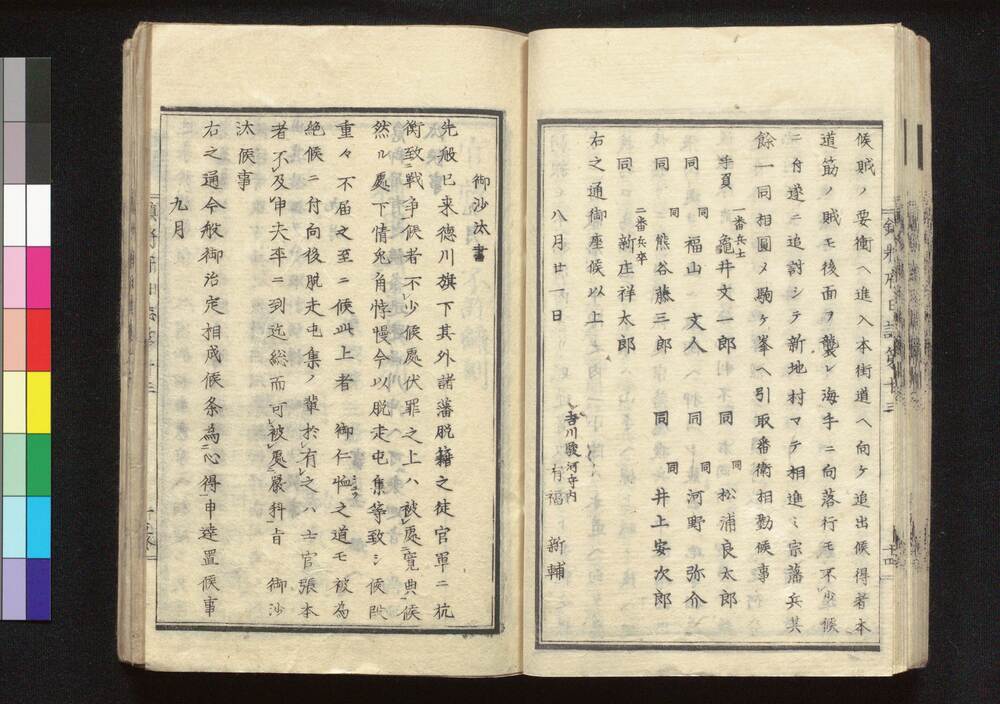 候賊ノ要衝ヘ進入本街道ヘ向ケ追出候得者本
道筋ノ賊モ後面ヲ襲レ海手ニ向落行モ不少候
ニ付遂ニ追討シテ新地村マテ相進ミ宗藩兵其
餘一同相圓メ駒ケ峯ヘ引取番衛相勤候事
手負 一番兵士 亀井文一郎 同 同 松浦良太郎
同 同 福山文人 同 同 河野弥介
同 同 熊谷藤三郎 同 同 井上安次郎
同 二番兵卒 新庄祥太郎
右之通御座候以上
八月廿一日 吉川駿河守内 有福新輔
御沙汰書
先般已来德川旗下其外諸藩脱籍之徒官軍ニ抗
衡致戰争候者不少候處伏罪之上ハ被處寛典候
然ル處下情兎角恃慢今以脱走屯集等致シ候段
重々不届之至ニ候此上者 御仁恤之道モ被為
絶候ニ付向後脱走屯集ノ輩於有之ハ士官張本
者不及申夫卒ニ到迄総而可被處嚴科旨 御沙
汰候事
右之通今般御治定相成候条為心得申達置候事
九月